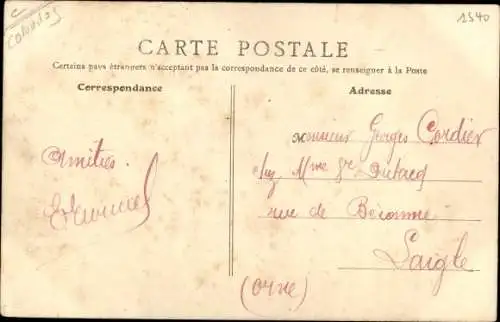 1540
CARTE POSTALE
Certains pays étrangers n'acceptant pas la correspondance de ce côté, se renseigner à la Poste
Correspondance
Adresse
Amitiés
Monsieur Georges Cordier
chez Mme Vve Dutacq
rue de Bécanne
Laigle
(Orne)